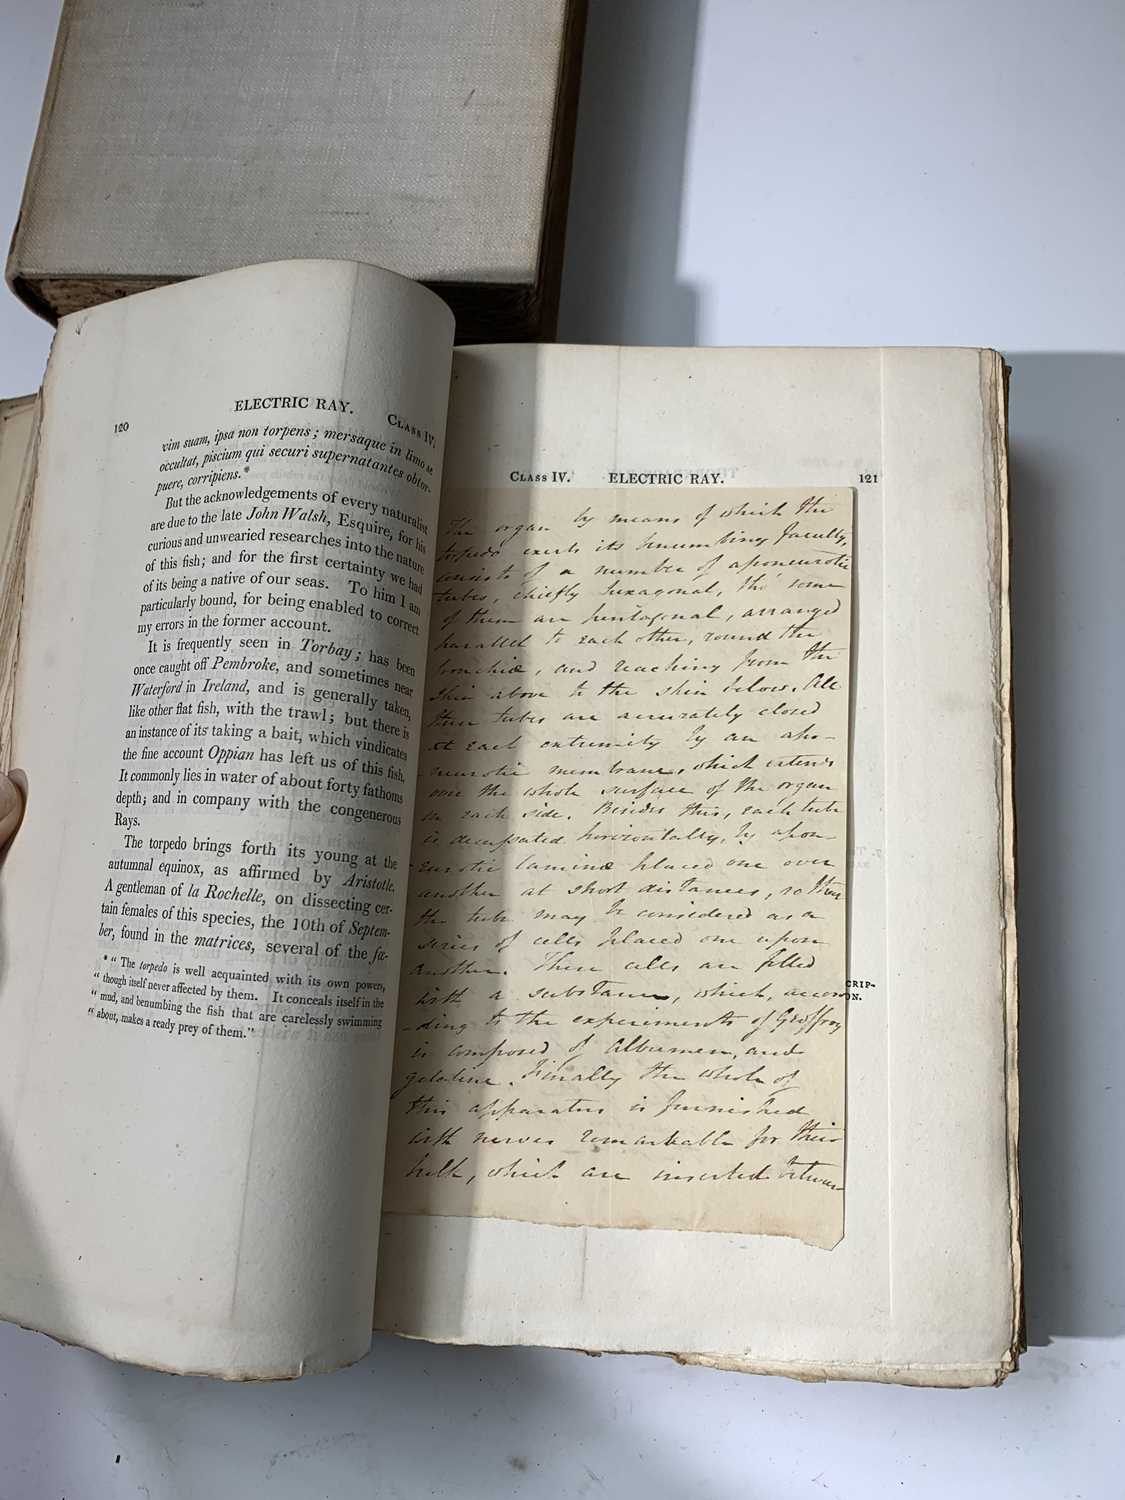 120
ELECTRIC RAY.
CLASS IV.
vim suam, ipsa non torpens; mersaque in limo se
occultat, piscium qui securi supernatantes obtor-
puere, corripiens.*
But the acknowledgements of every naturalist
are due to the late John Walsh, Esquire, for his
curious and unwearied researches into the nature
of this fish; and for the first certainty we had
of its being a native of our seas. To him I am
particularly bound, for being enabled to correct
my errors in the former account.
It is frequently seen in Torbay; has been
once caught off Pembroke, and sometimes near
Waterford in Ireland, and is generally taken,
like other flat fish, with the trawl; but there is
an instance of its taking a bait, which vindicates
the fine account Oppian has left us of this fish.
It commonly lies in water of about forty fathoms
depth; and in company with the congenerous
Rays.
The torpedo brings forth its young at the
autumnal equinox, as affirmed by Aristotle.
A gentleman of la Rochelle, on dissecting cer-
tain females of this species, the 10th of Septem-
ber, found in the matrices, several of the fœ-
* " The torpedo is well acquainted with its own powers,
" though itself never affected by them. It conceals itself in the
" mud, and benumbing the fish that are carelessly swimming
" about, makes a ready prey of them."
CLASS IV. ELECTRIC RAY. 121
The organ by means of which the
torpedo exerts its benumbing faculty,
consists of a number of aponeurotic
tubes, chiefly hexagonal, tho' some
of them are pentagonal, arranged
parallel to each other, round the
bronchiæ, and reaching from the
skin above to the skin below. All
these tubes are accurately closed
at each extremity by an apo-
neurotic membrane, which extends
over the whole surface of the organ
on each side. Besides this, each tube
is decussated horizontally, by apon-
eurotic laminæ placed one over
another at short distances, so that
the tube may be considered as a
series of cells placed one upon
another. These cells are filled
with a substance, which, accor
-ding to the experiments of Geoffroy
is composed of Albumen, and
gelatine. Finally the whole of
this apparatus is furnished
with nerves remarkable for their
bulk, which are inserted between
CRIP-
ON.